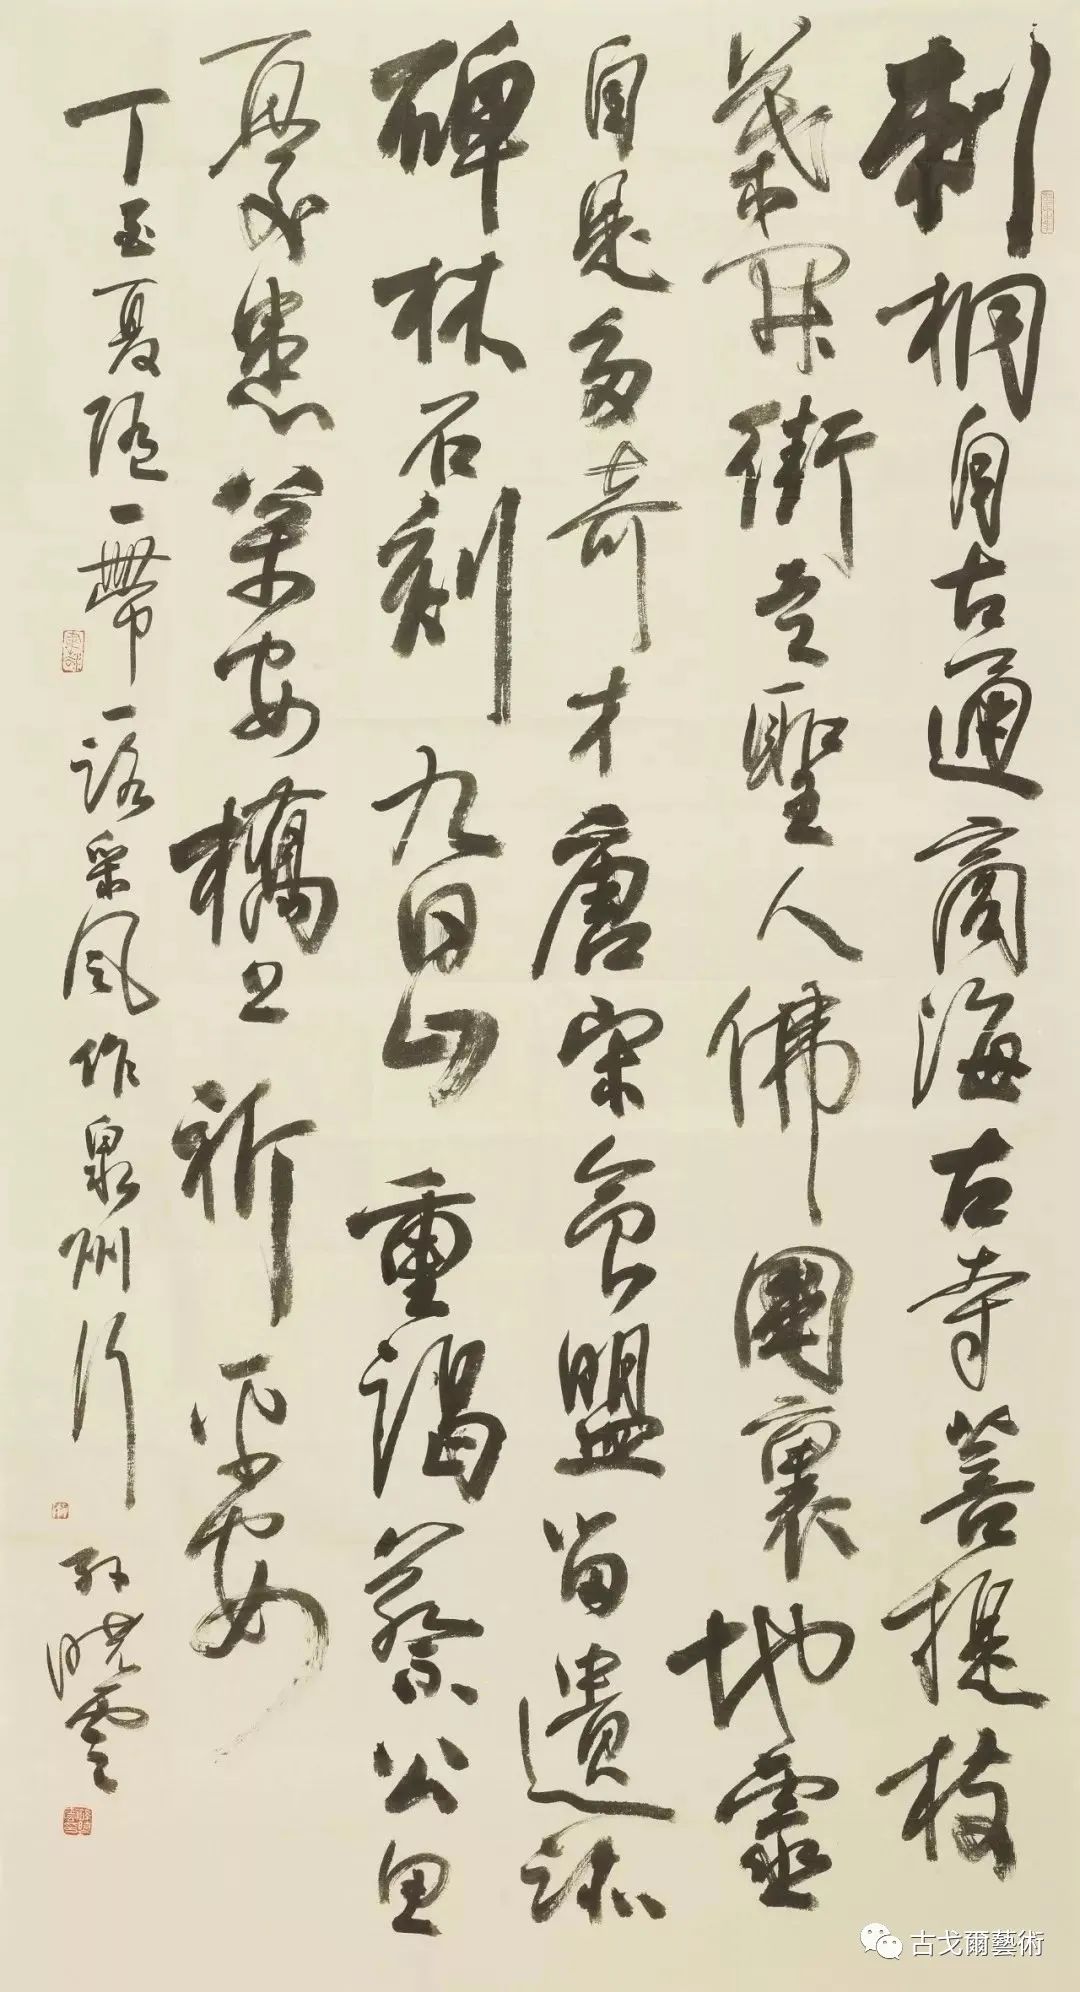 刺桐自古通商海古寺菩提枝
葉開街是聖人佛國裏地靈
自是多奇才唐宋會盟留遺跡
碑林石刻九日山重謁蔡公思
憂患萬安橋上祈平安
丁酉夏隨一帶一路采風作泉州行 孫曉雲
古戈爾藝術